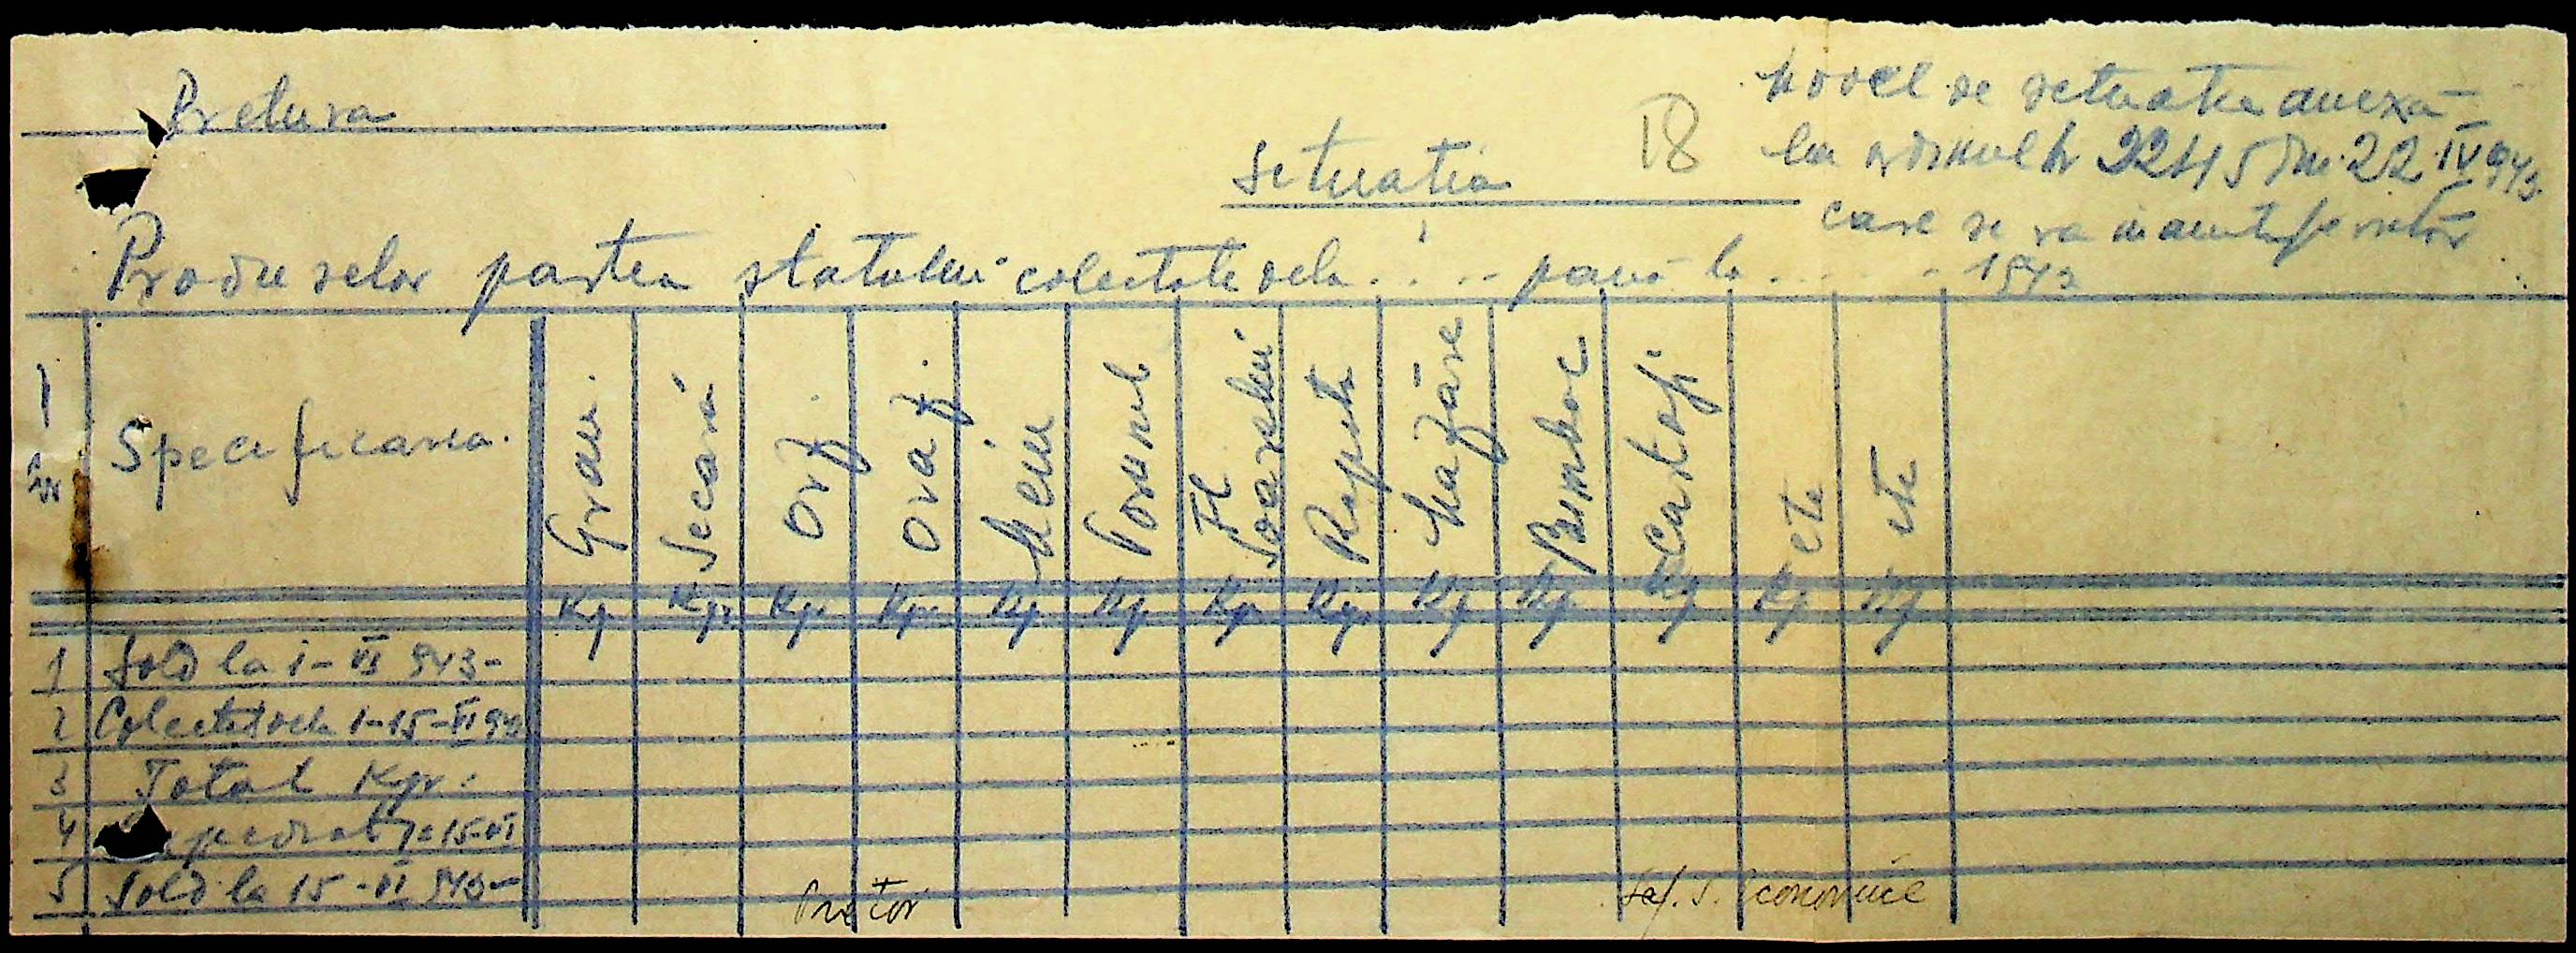 Pretura
Model de situatia anexă
la ordinul Nr 2245 din 22 IV 943
care se va înainta
18
Situatia
Produselor partea statului colectate dela . . . . până la . . . . 1943
Nr
Specificarea.
Grâu
Secară
Orz
Ovăz
Meiu
Porumb
Fl Soarelui
Rapiță
Mazăre
Bumbac
Cartofi
etc
etc
Kg. Kgr Kgr Kgr Kg Kg. Kgr Kgr Kg Kg Kg Kg Kg
1 Sold la 1-VI 943-
2 Colectat dela 1-15-VI 943
3 Total Kgr:
4 1-15-VI
5 Sold la 15-VI 943-
Pretor
Șef. S. Economice